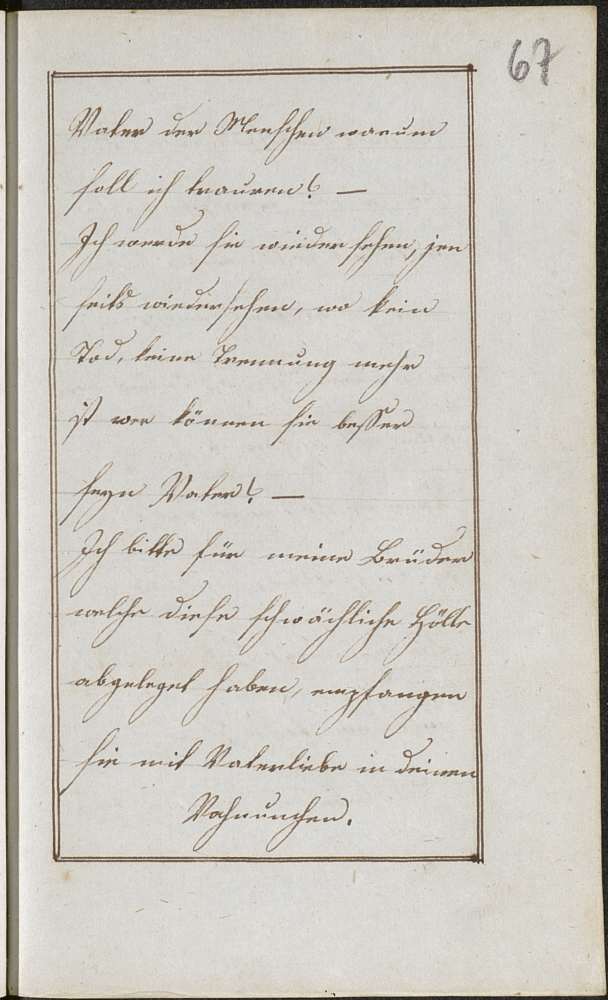 67
Vater der Menschen warum
soll ich trauren? —
Ich werde sie wieder sehen, jen
seits wiedersehen, wo kein
Tod, keine Trennung mehr
ist wo können sie besser
seyn Vater? —
Ich bitte für meine Brüder
welche diese schwächliche Hülle
abgeleget haben, empfangen
sie mit Vaterliebe in deinen